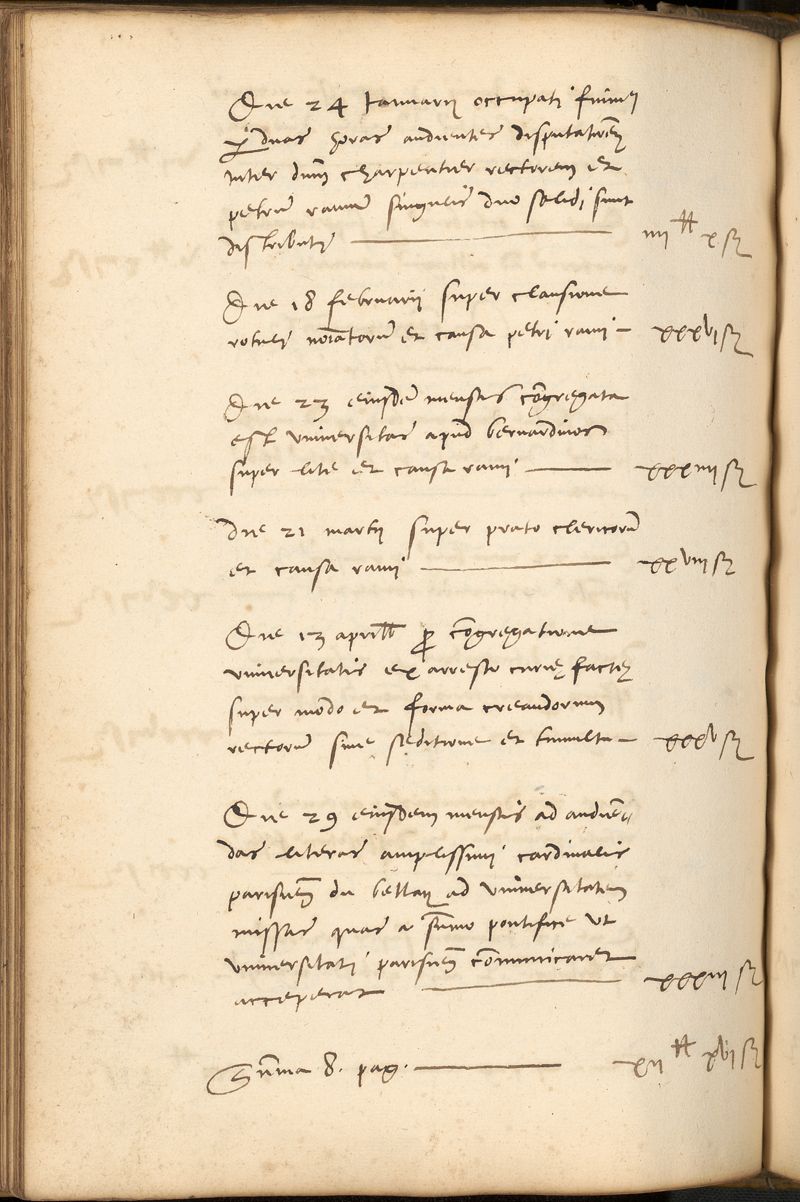 Die 24 Januarii occupati fuim9
per duas horas audientes disputatioẽ
inter dñm charpentier rectorem et
petrũ ramũ singulis duo solidi sunt
distributi iiii# x s
Die 18 februarii super clausione
rotuli noĩatorũ et causa petri rami xxxvi s
Die 23 eiusdẽ mensis cõgregata
est vniuersitas apud bernardinos
super lite et causa rami xxxiiii s
Die 21 martii super prato clericorũ
et causa rami xxviii s
Die 13 aprilis pro cõgregatione
vniuersitatis ex arresto curię factę
super modo et forma creandorum
rectorũ sine seditione et tumultu xxxv s
Die 29 eiusdem mensis ad audiẽ
das literas amplissimi cardinalis
parisieñ du bellaÿ ad vniuersitatem
missas quas a sũmo pontifice vt
vniuersitati parisieñ cõmunicaret
acceperat xxxiii s
Sũma 8. pag. xii# xvi s